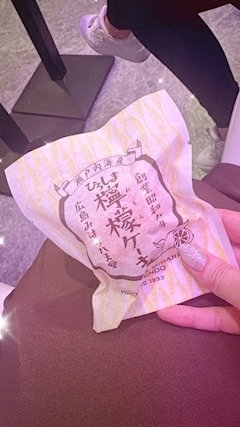 瀬戸内海産
創業昭和八年
ひろしま
檸檬ケーキ
れもん
広島みはら 八天堂
HATTENDO
1933